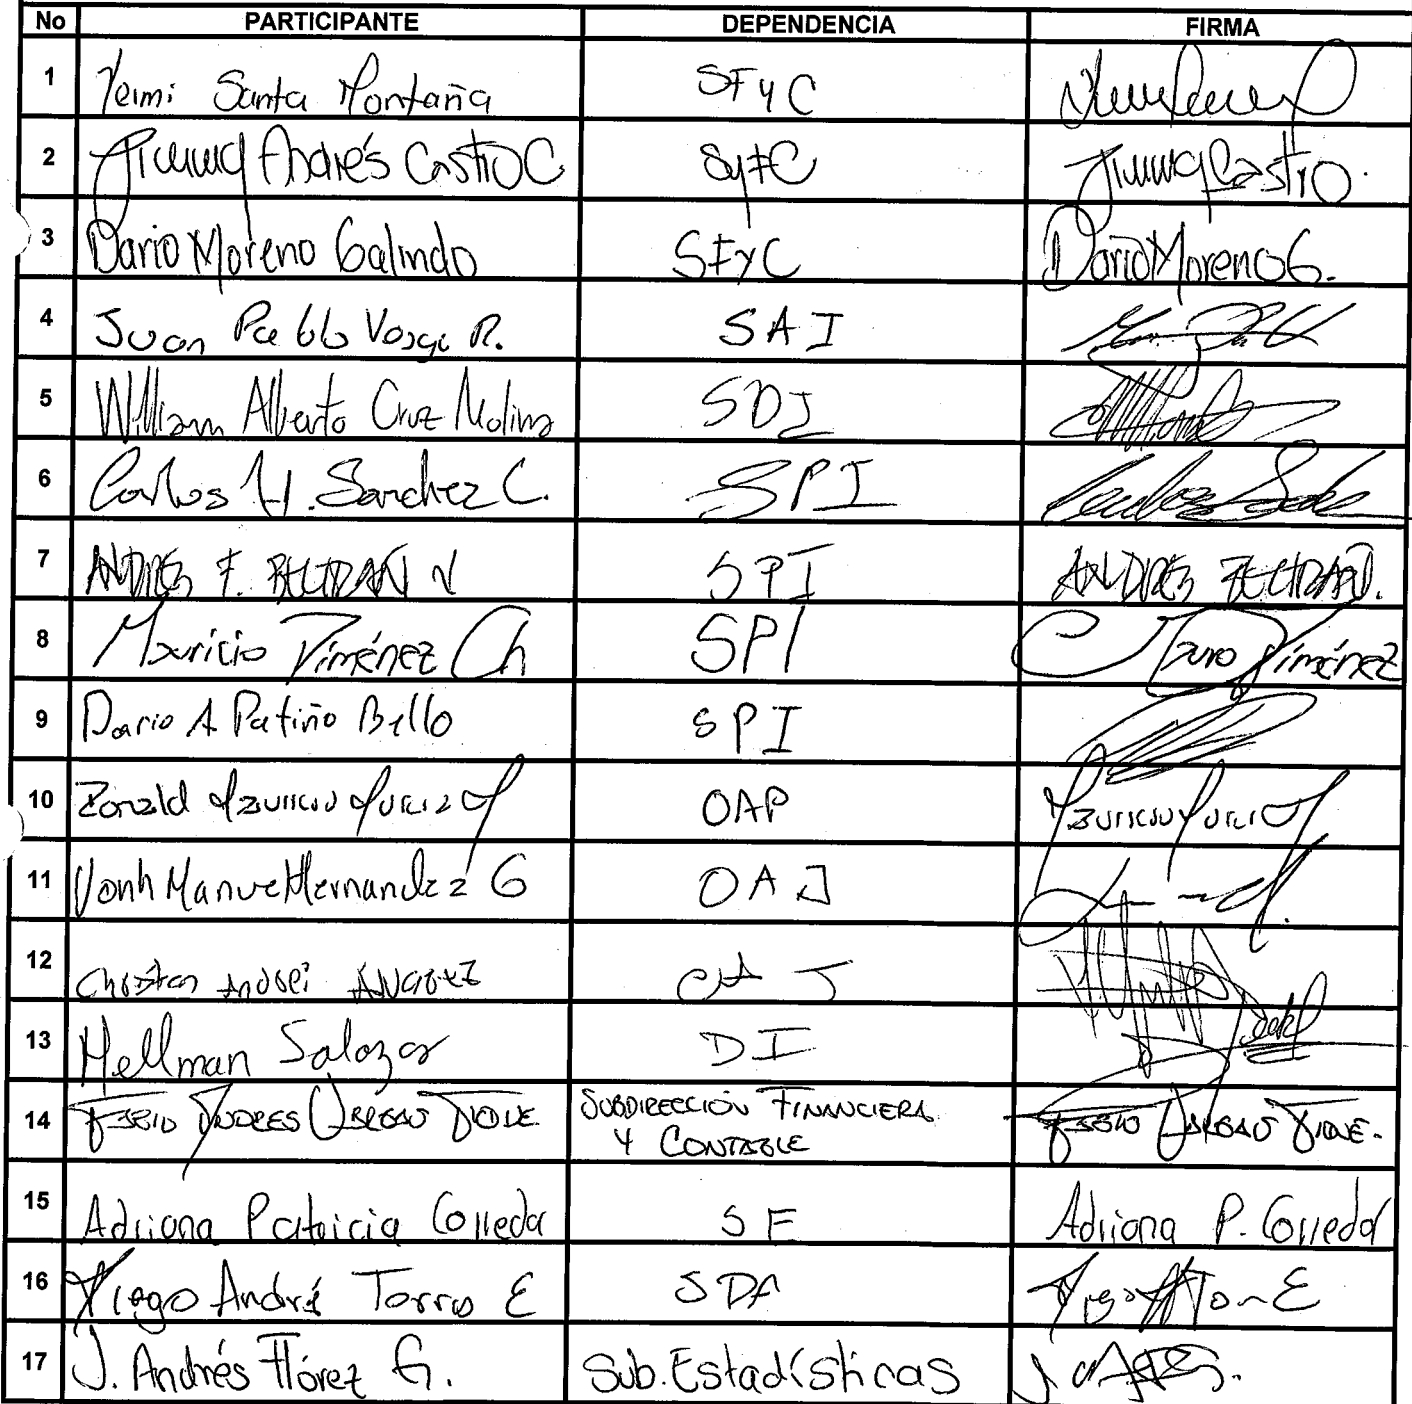 No PARTICIPANTE DEPENDENCIA FIRMA
1 Yeimi Santa Montaña SFyC
2 Jimmy Andrés Castro C. SyFC Jimmy Castro.
3 Dario Moreno Galindo SFyC Dario Moreno G.
4 Juan Pablo Vargas R. SAI
5 William Alberto Cruz Molina SDI
6 Carlos H. Sanchez C. SPI
7 ANDRES F. BELTRAN N SPI ANDRES BELTRAN.
8 Mauricio Jiménez Ch SPI Mauro Jiménez
9 Dario A Patiño Bello SPI
10 Ronald Mauricio Murcia M OAP Mauricio Murcia M
11 Yonh Manuel Hernandez G OAJ
12 Christian Andrei ALVAREZ OAJ
13 Hellman Salazar DI
14 FABIO ANDRES VARGAS TIQUE SUBDIRECCIÓN FINANCIERA FABIO VARGAS TIQUE.
Y CONTABLE
15 Adriana Patricia Corredor SF Adriana P. Corredor
16 Diego André Torres E SDA Diego E
17 J. Andrés Flórez G. Sub. Estadísticas